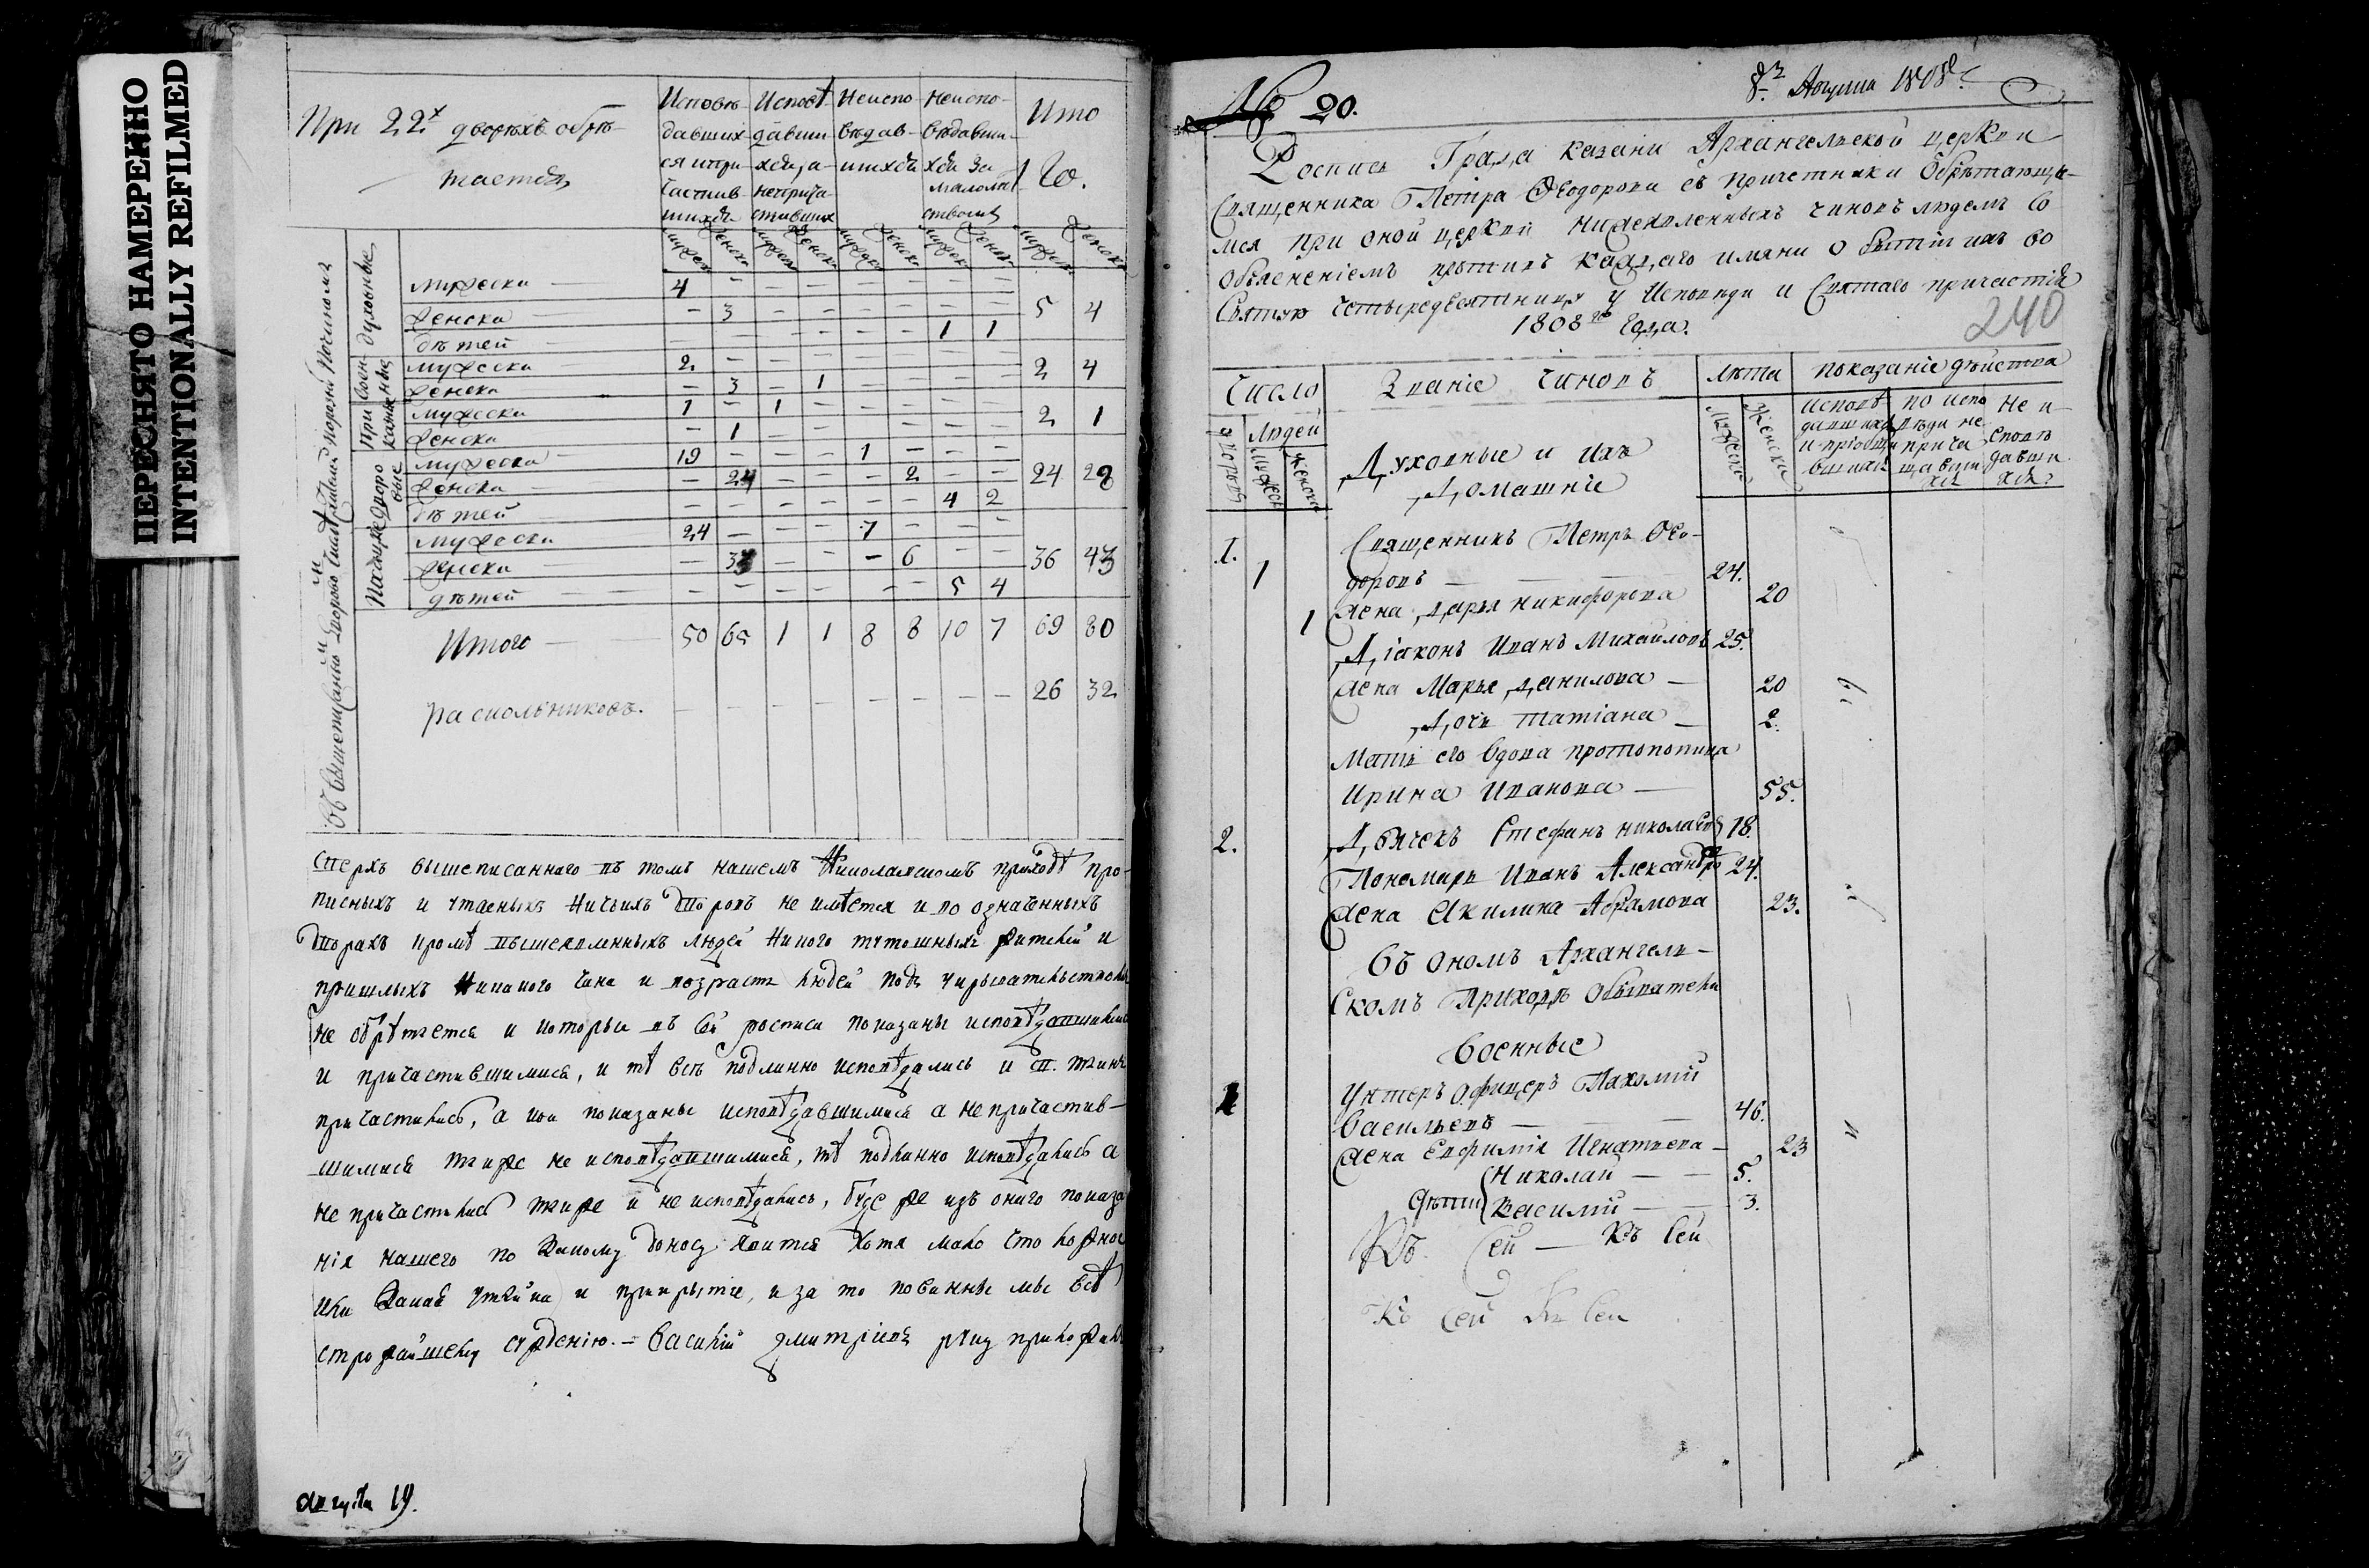 ПЕРЕСНЯТО НАМЕРЕННО
INTENTIONALLY REFILMED
При 22х дворѣхъ обрѣ-
тается
Исповѣ- Исповѣ- Неиспо- Неиспо- Ито
давших- давши- вѣдав- вѣдавши-
ся и при- хся, а- шихся хся за го.
частив- неприча- малолѣт
шихся ставших ством
мужеска женска мужеска женска мужеска женска мужеска женска мужеска женска
духовные
мужеска 4 — — — — — — —
женска — 3 — — — — — — 5 4
дѣтей — — — — — — 1 1
Воен-
ные
мужеска 2 — — — — — — — 2 4
женска — 3 — 1 — — — —
При
казные
мужеска 1 — 1 — — — — — 2 1
женска — 1 — — — — — —
Дворо
вые
мужеска 19 — — — 1 — — —
женска — 24 — — — 2 — — 24 28
дѣтей — — — — — — 4 2
Посацкие
мужеска 24 — — — 7 — — —
женска — 33 — — — 6 — — 36 43
дѣтей — — — — — — 5 4
Итого 50 65 1 1 8 8 10 7 69 80
раскольниковъ. — — — — — — — — 26 32
Сверхъ вышеписаннаго въ томъ нашемъ Николаевскомъ приходѣ про-
писныхъ и утаеныхъ ничьихъ дворовъ не имѣется и во означенныхъ
дворахъ кромѣ вышеявленныхъ людей никого тутошныхъ жителей и
пришлыхъ никакого чина и возраста людей подъ укрывательствомъ
не обрѣтается и которыя въ сей росписи показаны исповѣдавшимися
и причастившимися, и тѣ всѣ подлинно исповѣдались и св. таинъ
причастились, а кои показаны исповѣдавшимися а непричастив-
шимися также не исповѣдавшимися, тѣ подлинно исповѣдались а
не причастились также и не исповѣдались, буде же изъ оного показа
нія нашего по какому доносу явится хотя мало что ложное
или какая утайка и прикрытіе, и за то повинны мы всѣ
строжайшему сужденію. — Василій Дмитріевъ руку приложилъ
Августа 19.
№ 20.
8го Августа 1808го
Роспись Града Казани Архангельской церкви
Священника Петра Ѳеодорова съ причетники обрѣтающи-
мся при оной церкви нижеявленныхъ чиновъ людемъ со
объясненіемъ противъ каждаго имяни о бытіи ихъ во
святую четыредесятницу у исповѣди и святаго причастія
1808го года.
240
Число Званіе чиновъ лѣта показаніе дѣйства
дворовъ людей мужеска женска
мужеска женска
исповѣ по испо Не и-
давшихъ вѣди не сповѣ
и приобщи прича давши
вшихся щавши хся
хся
Духовные и ихъ
Домашніе
1. 1 Священникъ Петръ Ѳео-
доровъ — 24.
1 Жена Дарья Никифорова 20
Діаконъ Иванъ Михайловъ 25.
Жена Марья Данилова — 20
Дочь Татіана — 2.
Мать его вдова протопопица
Ирина Иванова — 55.
2. Дьячекъ Стефанъ Николаевъ 18
Пономарь Иванъ Александровъ 24.
Жена Акилина Абрамова 23.
Въ ономъ Архангель-
скомъ приходѣ обыватели
Военные
1 Унтеръ офицеръ Пахомій
Васильевъ — 46.
Жена Евфимія Игнатьева — 23
дѣти { Николай — 5.
Василий — 3.
Къ сей — Къ сей
Къ сей Къ сей